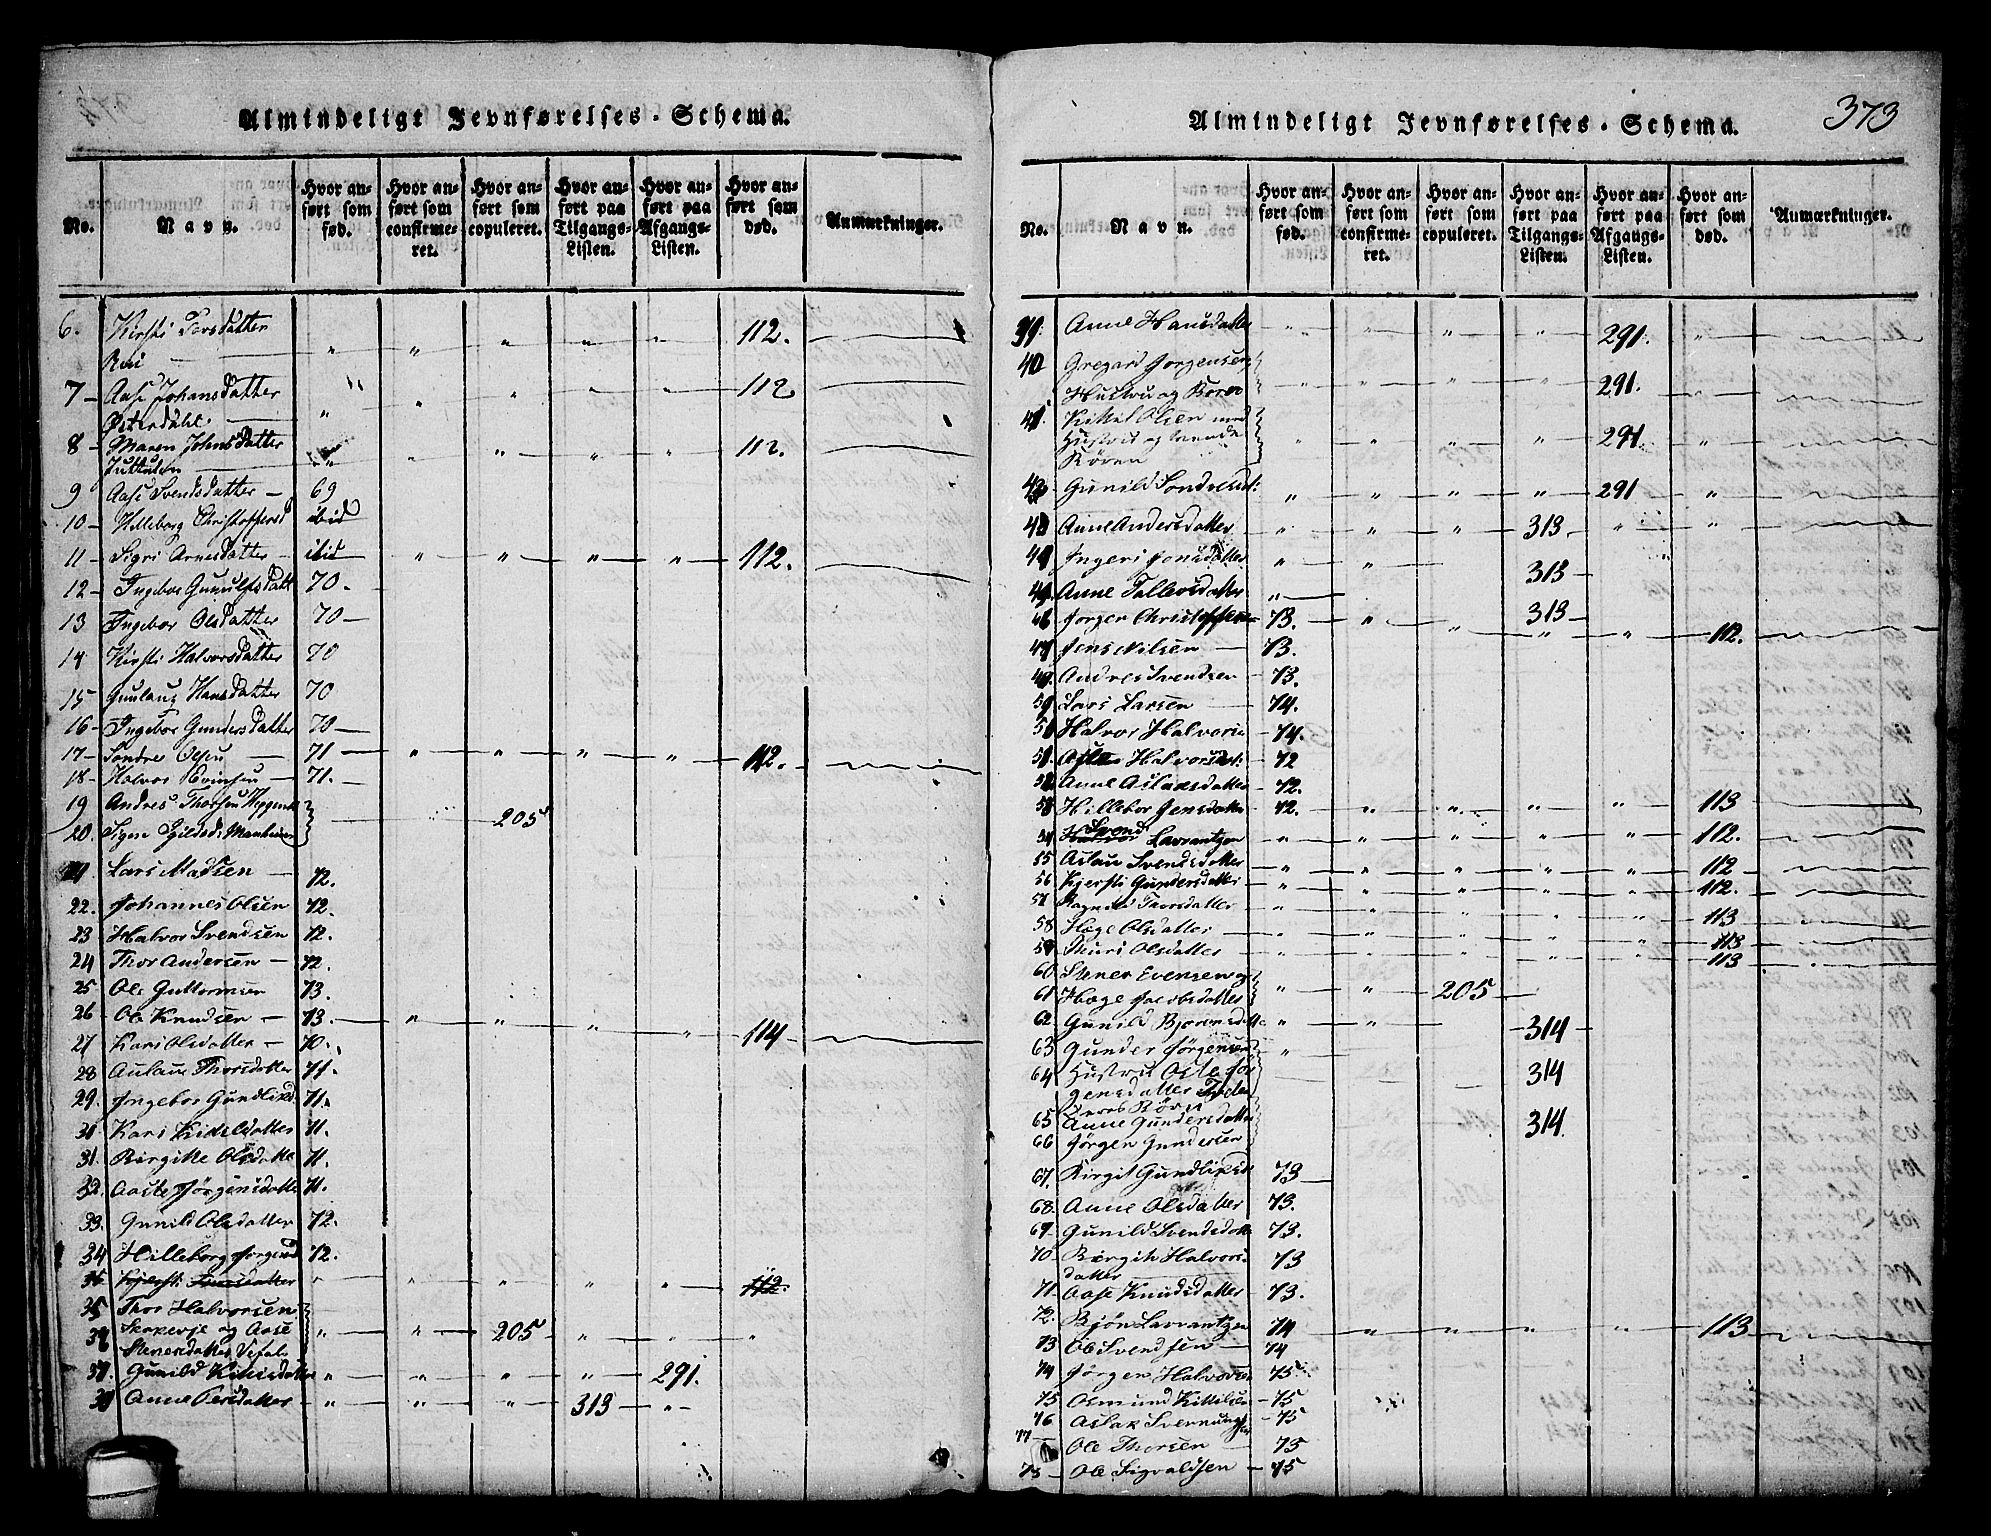 Almindeligt Jevnførelses-Schema.
No. Navn. Hvor anført som fød. Hvor anført som confirmeret. Hvor anført som copuleret. Hvor anført paa Tilgangs-Listen. Hvor anført paa Afgangs-Listen. Hvor anført som død. Anmærkninger.
6. Kirsti Torsdatter
" " " " " 112.
7 Aase Johansdatter " " " 112
Østerdahl. " "
8 Maren Johnsdatter " " " " " 112.
9 Aase Svendsdatter 69
10 Hilleborg Christoffersd ibid
11 Sigri Arnesdatter ibid " " " " 112.
12 Ingebor Gunulfsdatt 70.
13 Ingebor Olsdatter 70
14 Kirsti Halvorsdatter 70
15 Gunlaug Hansdatter 70
16 Ingebor Gundersdatter 70
17 Sondre Olsen 71 " " " " 112.
18 Halvor Evensen 71.
19 Andres Thorsen
205
20. Signe
21 Lars Madsen 72.
22. Johannes Olsen 72.
23 Halvor Svendsen 72.
24 Thor Andersen 72.
25 Ole Guttormsen 73.
26 Ole Knudsen 73. " " " " 114
27 Kari Olsdatter 70.
28 Aulaue Thorsdatter 71.
29. Ingebor Gundliksd 71.
30 Kari Kidelsdatter 71.
31. Birgitte Olsdatte 71.
32. Aaste Jørgensdatte 71.
33. Gunild Olsdatter 72.
34 Hilleborg Jørgensd 72.
Kjersti " " " " " 112.
35 Thor Halvorsen
og Aase " " 205 " " "
37. Gunild " " " " 291.
38 Anne Persdatter " " " 313 "
Almindeligt Jevnførelses-Schema. 373
No. Navn. Hvor anført som fød. Hvor anført som confirmeret. Hvor anført som copuleret. Hvor anført paa Tilgangs-Listen. Hvor anført paa Afgangs-Listen. Hvor anført som død. Anmærkninger.
39. Anne Hansdatter " " " " 291. "
40 Gregard Jørgensen
Hustru og Børn " " " " 291. "
41. Kittel Olsen med
Hustru og " " " " 291 "
Børen
42 Gunild Sondresd: " " " " 291 "
43 Anne Andersdatter " " " 313. " "
44 Ingeri Jonsdatter " " 313
Anne Tallevsdatter "
46 Jørgen Christoffersen 73. " 313
" " " 112.
47 Jens Nilsen 73.
Andres Svendsen 73.
Lars Larsen 74.
Halvor Halvorse 74.
51. Halvorsdat: 72
52 Anne Aslaksdatter 72.
53 Hillebor Jensdatte 72. " " " " 113
54 Lavrantzen " " " " " 112.
55 Aslau Svendsdatter " " " " " 112
56 Kjersti Gundersdatter " " " " " 112.
57 Ragnild Thorsdatter " " " " " 113
58 Hæge Olsdatter " " " " " 113
59 Thuri Olsdatter " " " " " 113
60 Stener Evensen og
61 Hæge Jacobsdatter " " 205
62 Gunild Bjørensdatt " " 314
63 Gunder Jørgensen "
64 Hustru Aste Jør 314
gensdatter
Børn
65 Anne Gundersdatter 314.
66 Jørgen Gundersen
67. Birgit Gundliksd 73
68. Anne Olsdatter 73.
69 Gunild Svendsdatt 73.
70 Birgit Halvors 73
datter
71 Aase Knudsdatter 73.
72. Bjøn Lavrantzen 74 " " " " 113
73 Ole Svendsen 74
74 Jørgen Halvorsen 75
75 Osmund Kittilsen 75
76 Aslak Svennungsen 75
77 Ole Thorsen 75
78 Ole Sigvaldsen 75